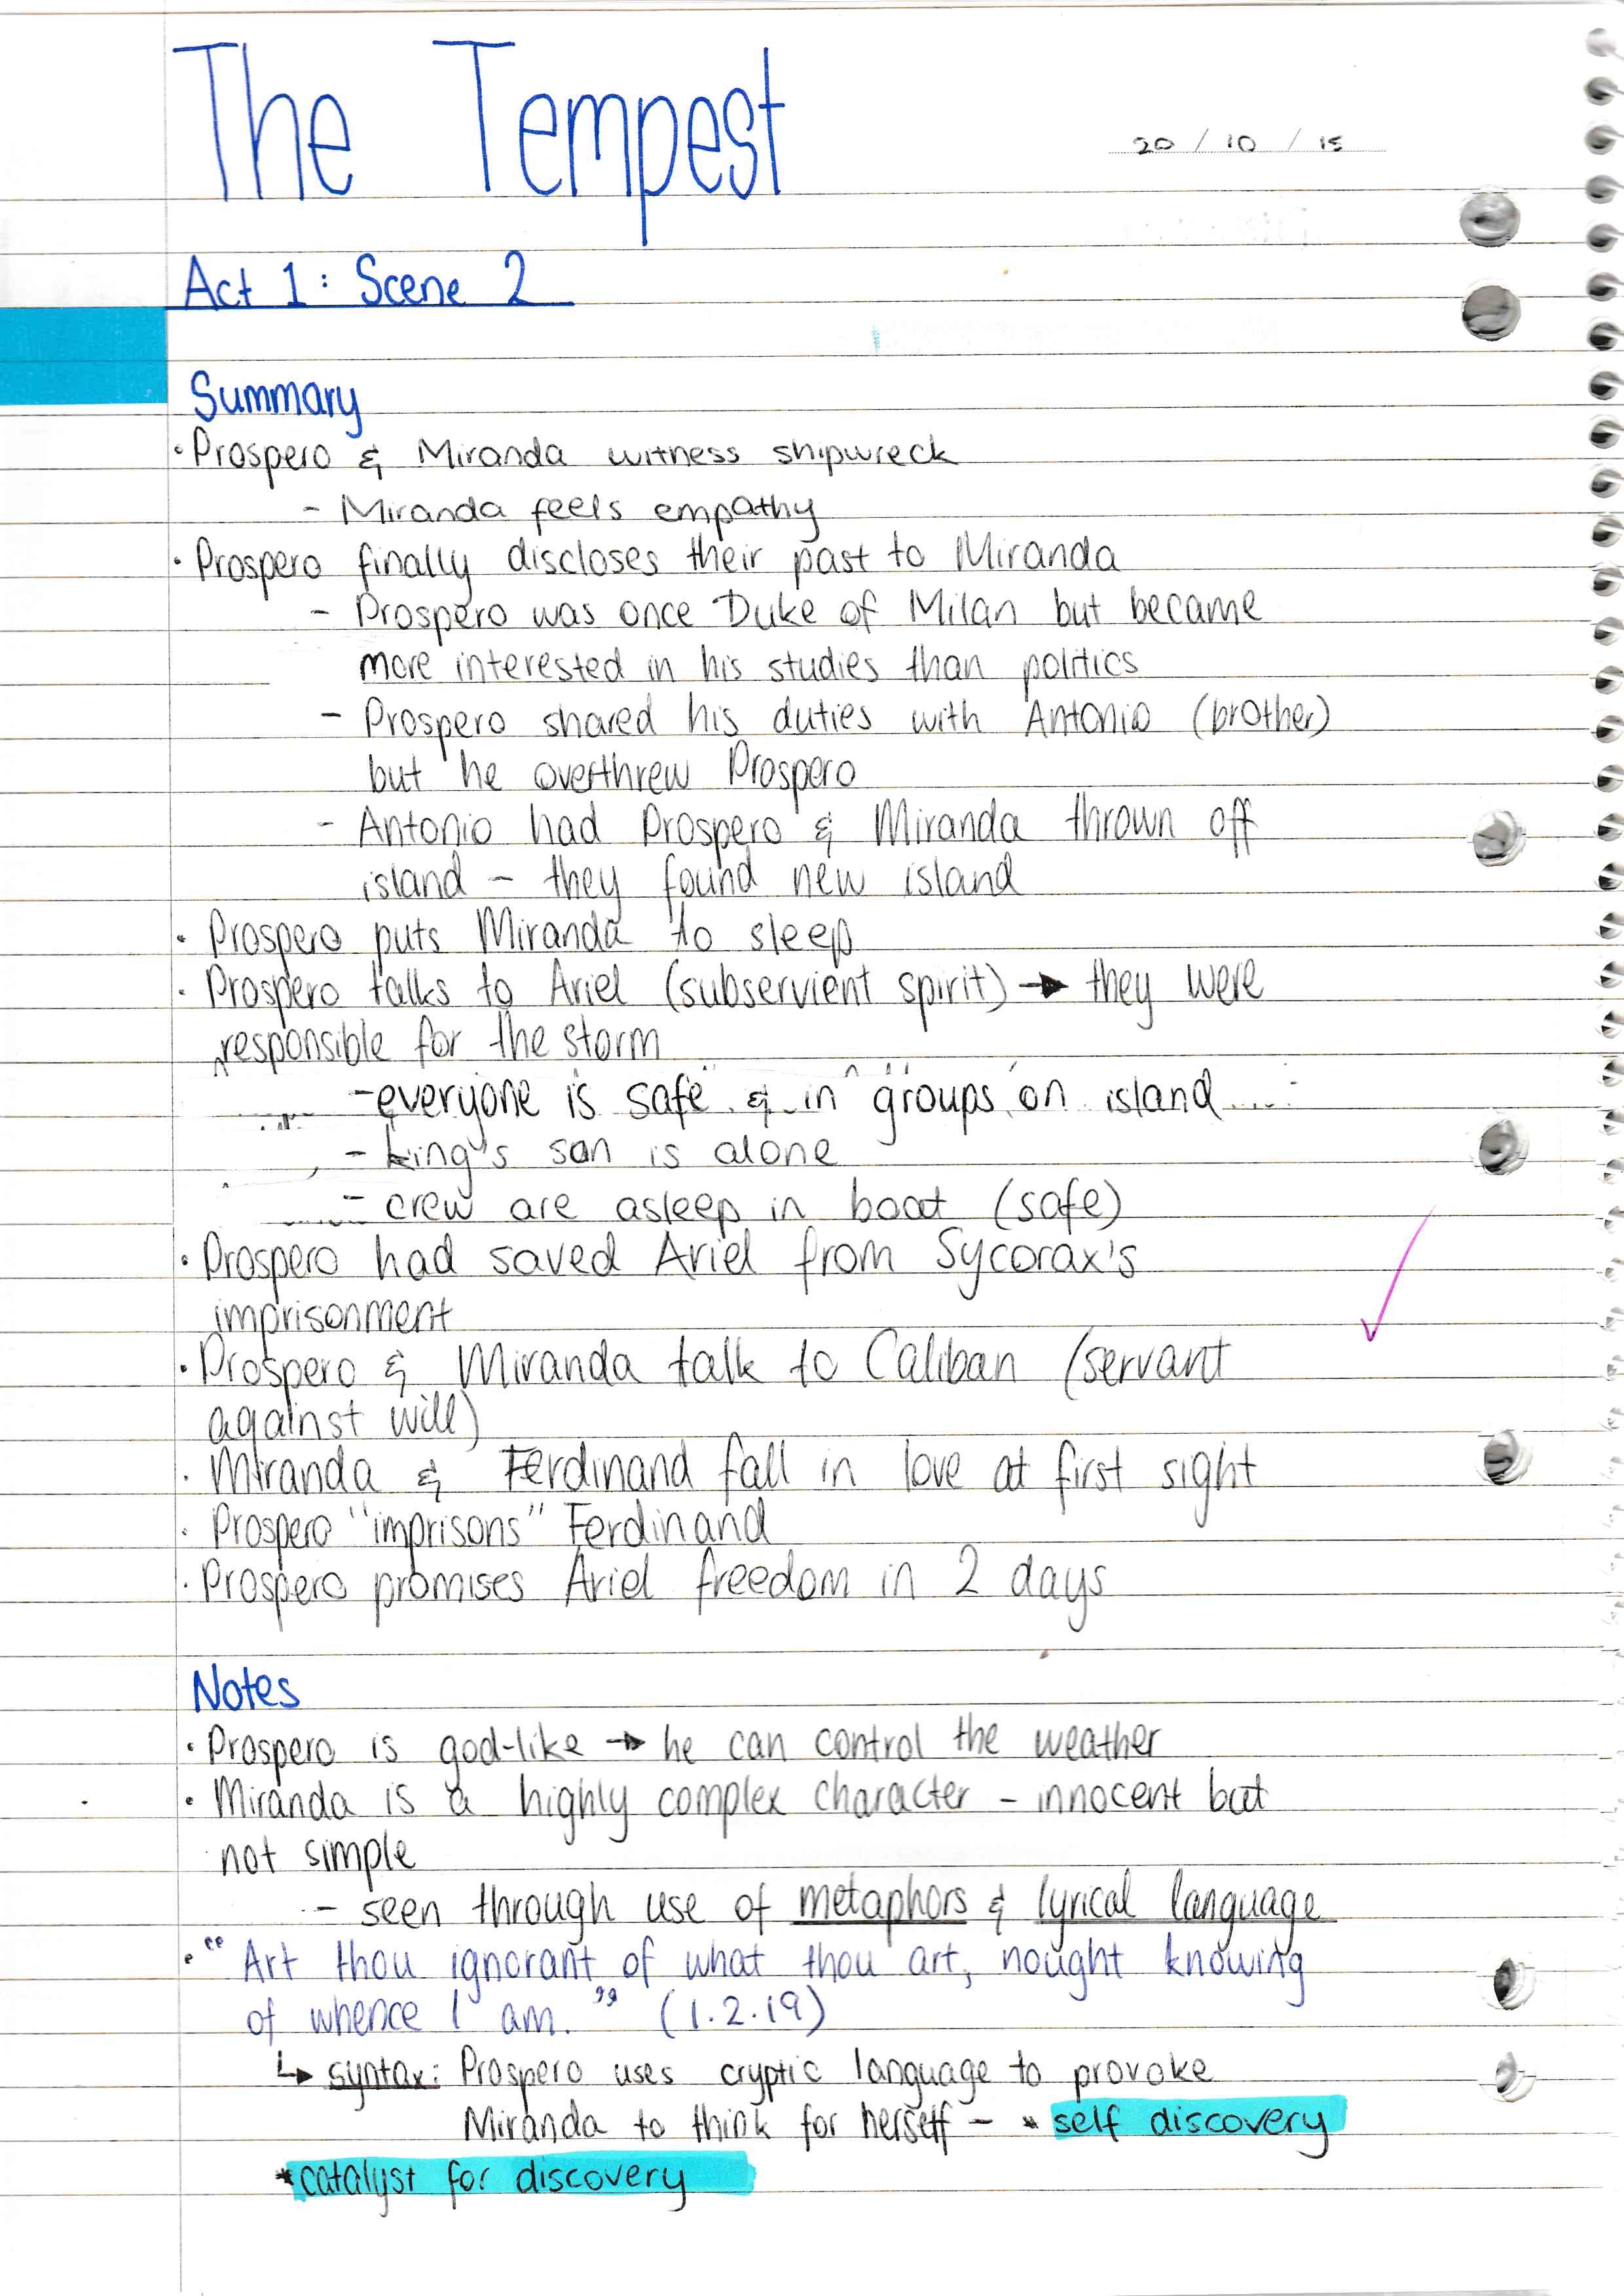 The Tempest
20 / 10 / 15
Act 1: Scene 2
Summary
• Prospero & Miranda witness shipwreck
- Miranda feels empathy
• Prospero finally discloses their past to Miranda
- Prospero was once Duke of Milan but became
more interested in his studies than politics
- Prospero shared his duties with Antonio (brother)
but he overthrew Prospero
- Antonio had Prospero & Miranda thrown off
island - they found new island
• Prospero puts Miranda to sleep
• Prospero talks to Ariel (subservient spirit) → they were
responsible for the storm
- everyone is safe & in groups on island
- king's son is alone
- crew are asleep in boat (safe)
• Prospero had saved Ariel from Sycorax's
imprisonment
• Prospero & Miranda talk to Caliban (servant
against will)
• Miranda & Ferdinand fall in love at first sight
• Prospero "imprisons" Ferdinand
• Prospero promises Ariel freedom in 2 days
Notes
• Prospero is god-like → he can control the weather
• Miranda is a highly complex character - innocent but
not simple
- seen through use of metaphors & lyrical language
• "Art thou ignorant of what thou art, nought knowing
of whence I am." (1.2.19)
↳ syntax: Prospero uses cryptic language to provoke
Miranda to think for herself - * self discovery
* catalyst for discovery